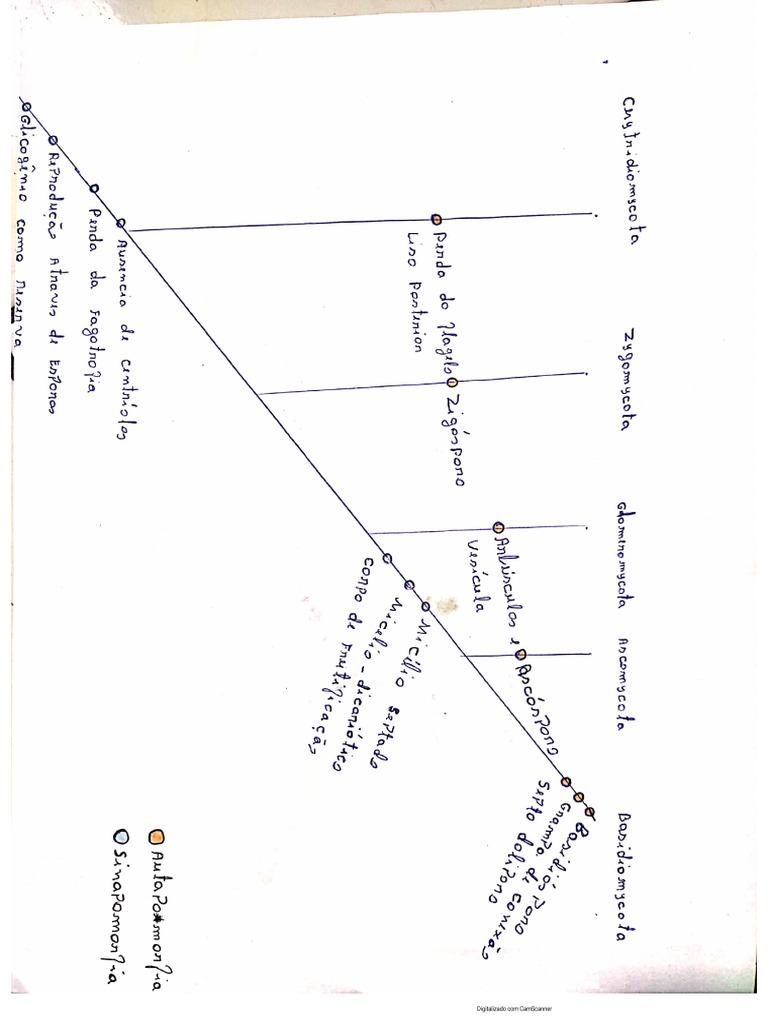 Chytridiomycota
Zygomycota
Glomeromycota
Ascomycota
Basidiomycota
Perda do flagelo
Liso posterior
Zigósporo
Arbúsculos e
Vesícula
Ascósporo
Basidiósporo
Grampo de conexão
Septo doliporo
Micélio septado
Micelio-dicariótico
Corpo de Frutificação
Ausencia de centríolos
Perda da fagotrofia
Reprodução Atraves de Esporos
Glicogênio como reserva
Autapomorfia
Sinapomorfia
Digitalizado com CamScanner